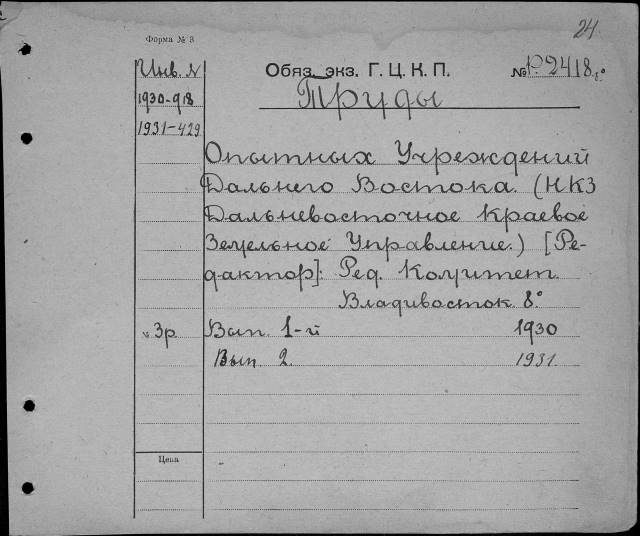 24.
Форма № 3
Инв. №
Обяз. экз. Г. Ц. К. П.
№ Р. 2418. 8°
1930-918
Труды
1931-429
Опытных Учреждений
Дальнего Востока. (НКЗ
Дальневосточное Краевое
Земельное Управление.) [Ре-
дактор]: Ред. Комитет.
Владивосток 8°
3р. Вып. 1-й 1930
Вып. 2. 1931.
Цена